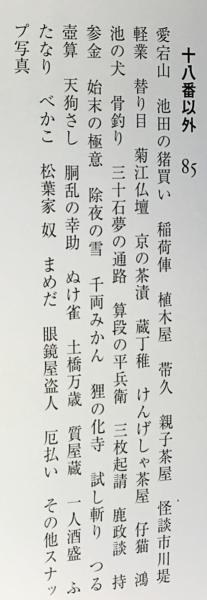 十八番以外 85
愛宕山 池田の猪買い 稲荷俥 植木屋 帯久 親子茶屋 怪談市川堤
軽業 替り目 菊江仏壇 京の茶漬 蔵丁稚 けんげしゃ茶屋 仔猫 鴻
池の犬 骨釣り 三十石夢の通路 算段の平兵衛 三枚起請 鹿政談 持
参金 始末の極意 除夜の雪 千両みかん 狸の化寺 試し斬り つる
壺算 天狗さし 胴乱の幸助 ぬけ雀 土橋万歳 質屋蔵 一人酒盛 ふ
たなり べかこ 松葉家奴 まめだ 眼鏡屋盗人 厄払い その他スナッ
プ写真